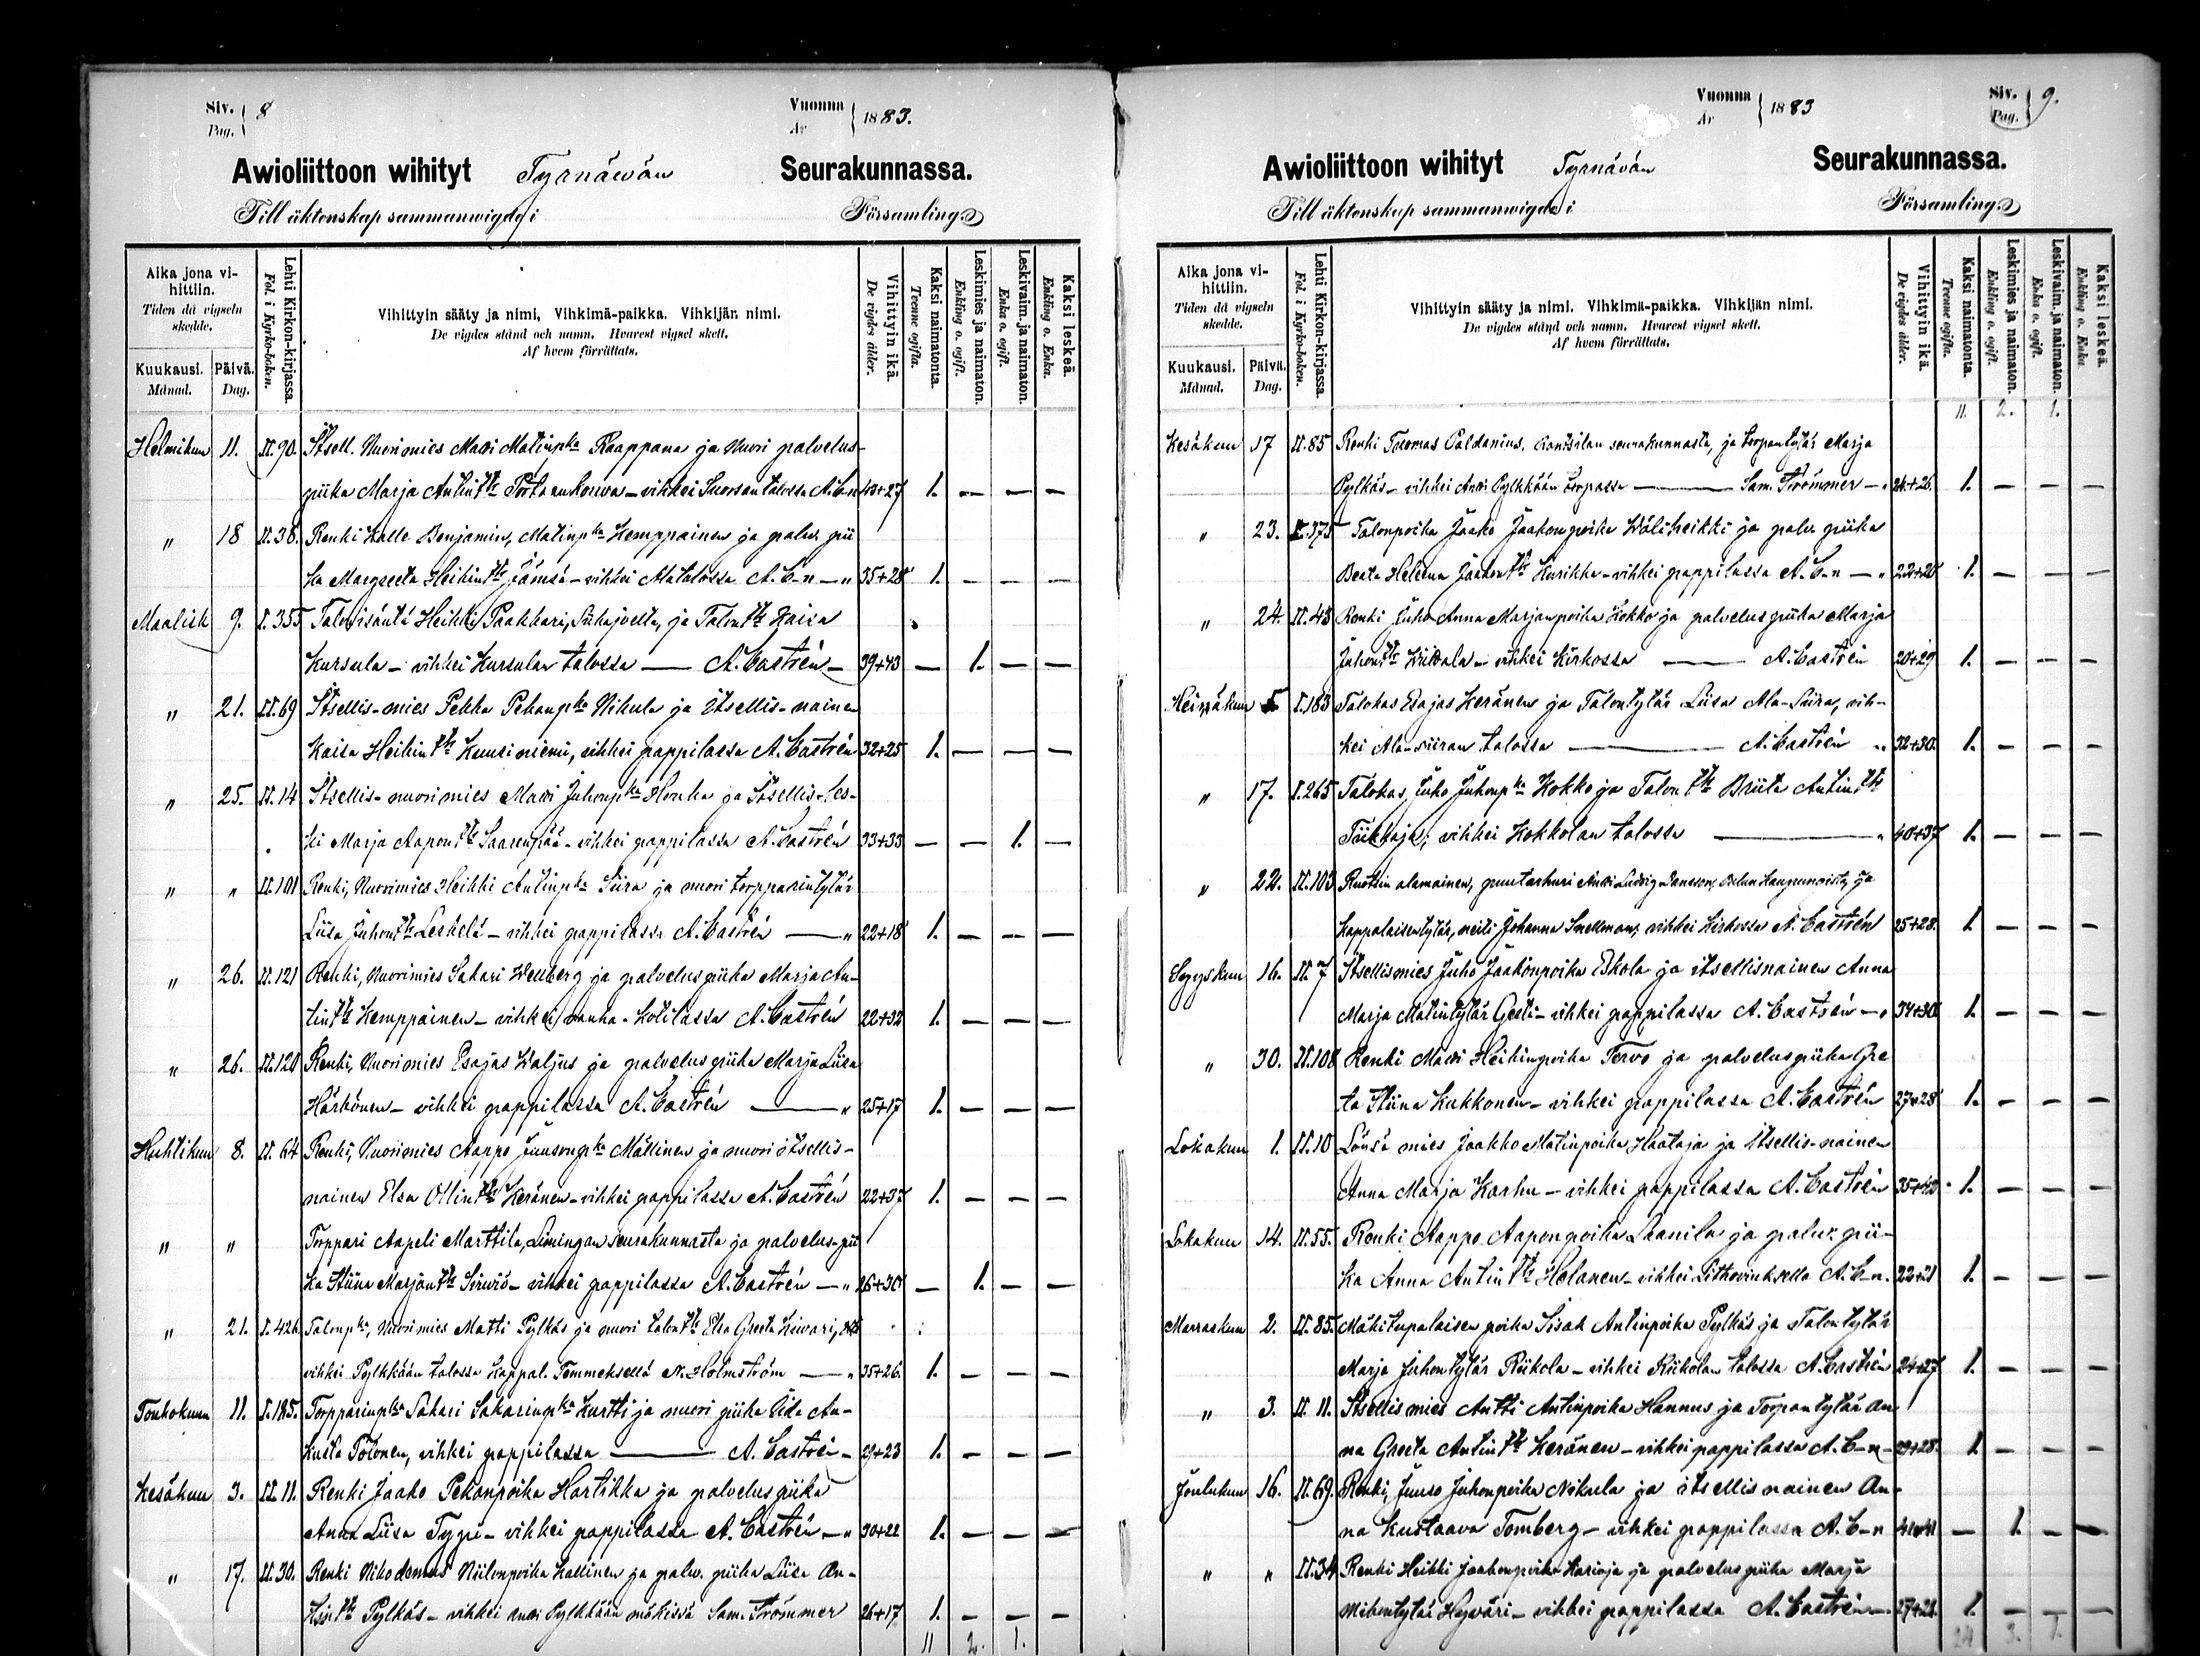 Siv. Pag. 8
Vuonna År 1883.
Awioliittoon wihityt Tyrnäwän Seurakunnassa.
Till äktenskap sammanwigde i Församling.
Aika jona vihittiin.
Tiden då vigseln skedde.
Kuukausi. Månad.
Päivä. Dag.
Lehti Kirkon-kirjassa.
Fol. i Kyrko-boken.
Vihittyin sääty ja nimi, Vihkimä-paikka. Vihkijän nimi.
De vigdes stånd och namn. Hvarest vigsel skett.
Af hvem förrättats.
Vihittyin ikä.
De vigdes ålder.
Kaksi naimatonta.
Tvenne ogifta.
Leskimies ja naimaton.
Enkling o. ogift.
Leskivaim. ja naimaton.
Enka o. ogift.
Kaksi leskeä.
Enkling o. Enka.
Helmikun 11. II.90. Itsell. Nuorimies Matti Matinpka Raappana ja Nuori palvelus-
piika Marja Antintr – vihkei Suorsan talossa A. C-n 43+27 1. – – –
" 18 II.38. Renki Kalle Benjamin, Matinpka Kemppainen ja palv. pii
ka Margreeta Heikintr Jämsä – vihkei Alatalossa A. C-n – " 35+28 1. – – –
Maalisk 9. I.355 Talonisäntä Heikki Paakkari, Siikajoelta, ja Talontr Kaisa
Kursula – vihkei Kursulan talossa – A. Castrén – 39+43 – 1. – –
" 21. II.69 Itsellis-mies Pekka Pekanpka Nikula ja Itsellis-nainen
Kaisa Heikintr Kuusiniemi, vihkei pappilassa A. Castrén 32+25 1. – – –
" 25. II.14 Itsellis-nuorimies Matti Juhonpka Honka ja Itsellis-les-
ki Marja Aapontr Saarenpää – vihkei pappilassa A. Castrén 33+33 – – 1. –
" " II.101 Renki, Nuorimies Heikki Antinpka Siira ja nuori torpparintytär
Liisa Juhontr Leskelä – vihkei pappilassa A. Castrén – " 22+18 1. – – –
" 26. II.121 Renki, Nuorimies Sakari Wellberg ja palveluspiika Marja An-
tintr Kemppainen – vihkei vanha-kotilassa A. Castrén 22+32 1. – – –
" 26. II.120 Renki, Nuorimies Esajas Waljus ja palveluspiika Marja Liisa
Härkönen – vihkei pappilassa A. Castrén – " 25+17 1. – – –
Huhtikun 8. II.64 Renki, Nuorimies Aappo Juusonpka Mällinen ja nuori itsellis-
nainen Elsa Ollintr Keränen – vihkei pappilassa A. Castrén 22+37 1. – – –
" " Torppari Aapeli Marttila, Limingan seurakunnasta ja palvelus-pii
ka Stiina Marjantr Sirviö – vihkei pappilassa A. Castrén – " 26+30 – 1. – –
" 21. I.426. Talonpka, Nuorimies Matti Pylkäs ja nuori talontr Elsa Greeta Kiwari,
vihkei Pylkkään talossa Kappal. Temmeksellä N. Holmström – " 35+26. 1. – – –
Toukokuun 11. I.185. Torpparinpka Sakari Sakarinpka Kurtti ja nuori piika Iida Au-
kusta Tölönen, vihkei pappilassa – A. Castrén – 29+23 1. – – –
Kesäkun 3. II.11. Renki Jaako Pekanpoika Hartikka ja palveluspiika
Anna Liisa Tyyri – vihkei pappilassa A. Castrén – " 30+22 1. – – –
" 17. II.30. Renki Nikodemus Niilonpoika Kallinen ja palv. piika Liisa An-
tintr Pylkäs – vihkei Antti Pylkkään mökissä Sam. Strömmer 26+17 1. – – –
11 2. 1.
Vuonna År 1883
Siv. Pag. 9.
Awioliittoon wihityt Tyrnävän Seurakunnassa.
Till äktenskap sammanwigde i Församling.
Aika jona vihittiin.
Tiden då vigseln skedde.
Kuukausi. Månad.
Päivä. Dag.
Lehti Kirkon-kirjassa.
Fol. i Kyrko-boken.
Vihittyin sääty ja nimi. Vihkimä-paikka. Vihkijän nimi.
De vigdes stånd och namn. Hvarest vigsel skett.
Af hvem förrättats.
Vihittyin ikä.
De vigdes ålder.
Kaksi naimatonta.
Tvenne ogifta.
Leskimies ja naimaton.
Enkling o. ogift.
Leskivaim. ja naimaton.
Enka o. ogift.
Kaksi leskeä.
Enkling o. Enka
11. 2. 1.
Kesäkun 17 II.85 Renki Tuomas Paldanius, Rantsilan seurakunnasta, ja torpantytär Marja
Pylkäs – vihkei Antti Pylkkään torpassa – Sam. Strömmer – " 24+26. 1. – – –
" 23. II.375 Talonpoika Jaako Jaakonpoika Wäliheikki ja palv. piika
Beata Helena Jaakontr Kurikka – vihkei pappilassa A. C-n – " 22+20 1. – – –
" 24. II.43 Renki Juho Anna Marjanpoika Kokko ja palveluspiika Marja
Juhontr Kiikala – vihkei Kirkossa – A. Castrén 20+29 1. – – –
Heinäkun 5 I.183 Talokas Esajas Keränen ja Talontytär Liisa Ala-Siira, vih-
kei Ala-siiran talossa – A. Castrén " 32+30. 1. – – –
" 17. I.265 Talokas, Juho Juhonpka Kokko ja Talontr Briita Antintr
Tiikkaja, vihkei Kokkolan talossa – " 40+37 1. – – –
" 22. II.103 Ruotsin alamainen, puutarhuri Antti Ludvig Jansson, Oulun Kaupungista ja
Kappalaisentytär, neiti Johanna Snellman, vihkei Kirkossa A. Castrén 25+28. 1. – – –
Syyskun 16. II.7 Itsellismies Juho Jaakonpoika Eskola ja itsellisnainen Anna
Marja Matintytär Gesti – vihkei pappilassa A. Castrén – " 34+30 1. – – –
" 30. II.108 Renki Matti Heikinpoika Tervo ja palveluspiika Gre
ta Stiina Kukkonen – vihkei pappilassa A. Castrén 27+28 1. – – –
Lokakun 1. II.10 Löusä mies Jaakko Matinpoika Haataja ja Itsellis-nainen
Anna Marja Karhu – vihkei pappilassa A. Castrén 35+40 1. – – –
Lokakun 14. II.55. Renki Aappo Aaponpoika Laanila ja palv. pii-
ka Anna Antintr Holanen – vihkei A. C-n. 22+21 1. – – –
Marraskun 2. II.85. Mäkitupalaisen poika Iisak Antinpoika Pylkäs ja Talontytär
Marja Juhontytär Riikola – vihkei Riikolan talossa A. Castrén 24+27 1. – – –
" 3. II.11. Itsellismies Antti Antinpoika Hannus ja Torpantytär An
na Greeta Antintr Keränen – vihkei pappilassa A. C-n – 29+28. 1. – – –
Joulukun 16. II.69. Renki, Juuso Juhonpoika Nikula ja itsellisnainen An-
na Kustaava Tomberg – vihkei pappilassa A. C-n 41+41 – 1. – –
" " II.34 Renki Heikki Jaakonpoika Karioja ja palveluspiika Marja
Mikontytär Hyväri – vihkei pappilassa A. Castrén – 27+21. 1. – – –
24 3. 1.